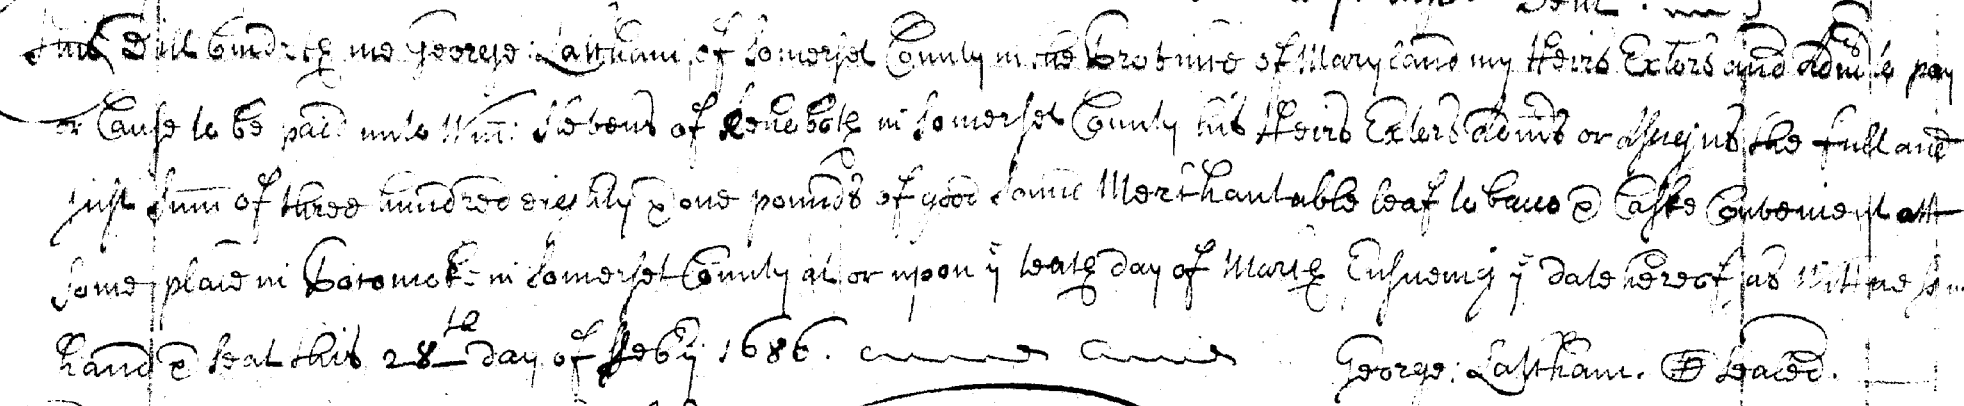 this Bill bindeth me George: Lastham, of Somerset County in the Province of Maryland my Heirs Extors and Admrs to pay
or Cause to be paid unto Wm: Stevens of Rehoboth in Somerset County his Heirs Exters Admrs or Assigns the full and
just Sum of three hundred eighty & one pounds of good sound Merchantable leaf tobacco & Caske Convenient att
some place in Pocomoke in Somerset County at or upon ye tenth day of March Ensueing ye date hereof, as Wittness my
hand & seal this 28th day of Feby 1686. George: Lastham. seale